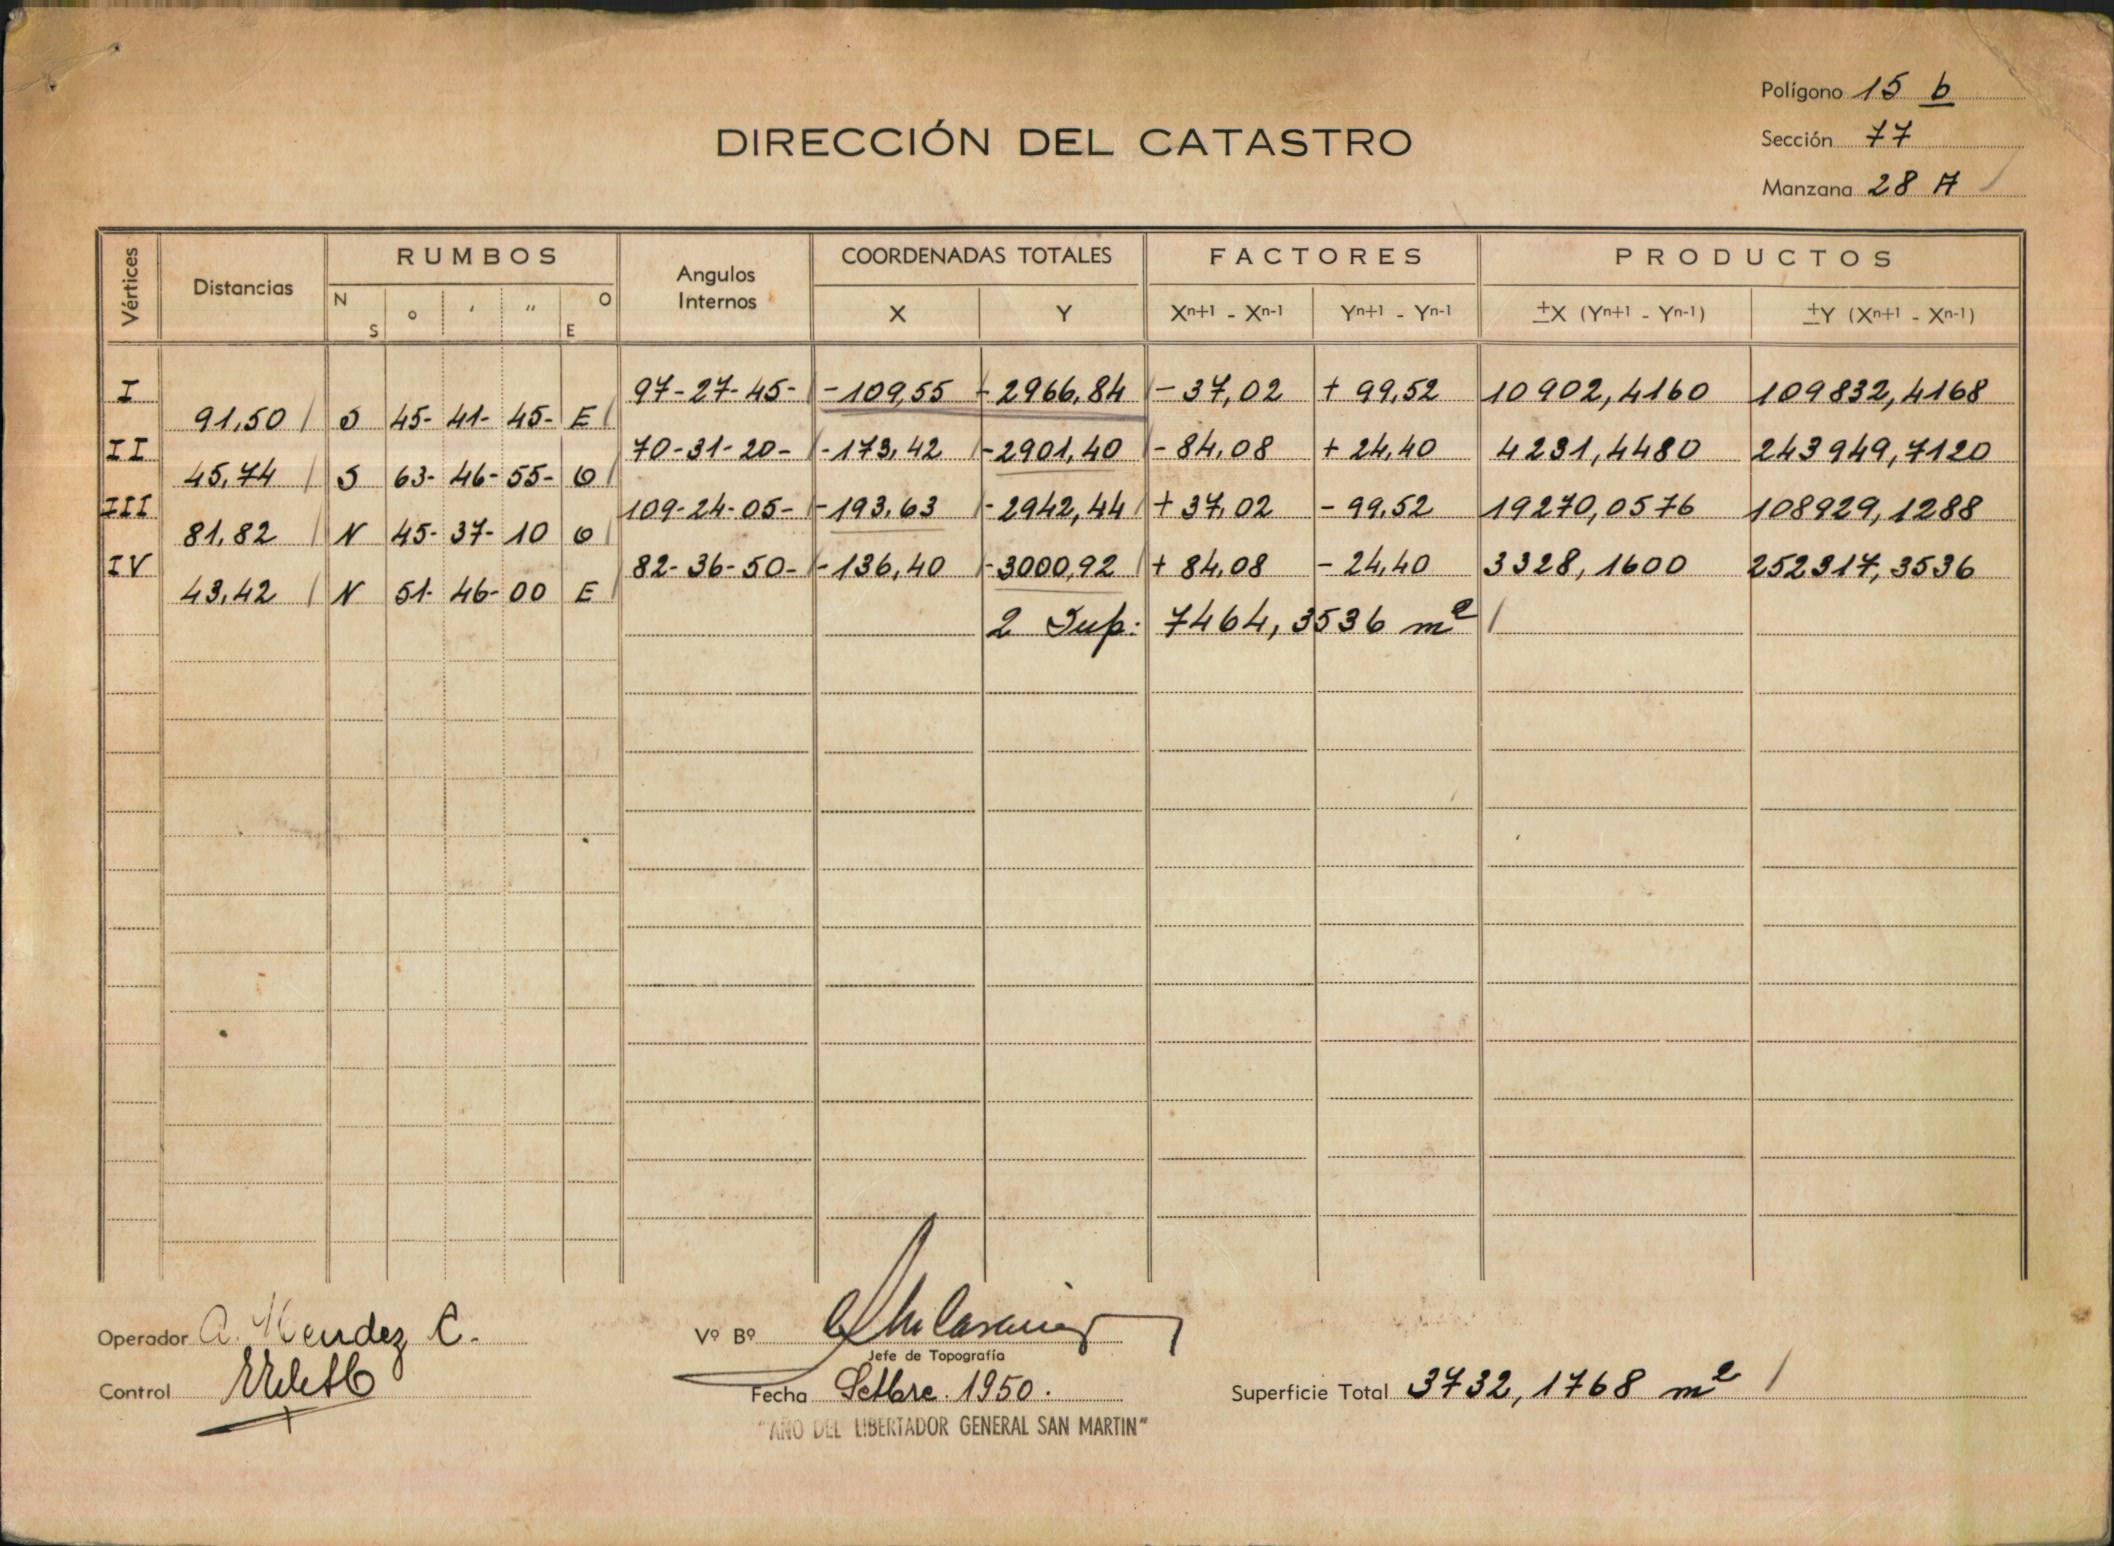 Polígono 15 b
DIRECCIÓN DEL CATASTRO
Sección 77
Manzana 28 A
Vértices Distancias RUMBOS Angulos Internos COORDENADAS TOTALES FACTORES PRODUCTOS
N S ° ' " O E X Y Xn+1 - Xn-1 Yn+1 - Yn-1 ±X (Yn+1 - Yn-1) ±Y (Xn+1 - Xn-1)
I 97-27-45- -109,55 -2966,84 -37,02 +99,52 10902,4160 109832,4168
91,50 S 45- 41- 45- E
II 70-31-20- -173,42 -2901,40 -84,08 +24,40 4231,4480 243949,7120
45,74 S 63- 46- 55- O
III 109-24-05- -193,63 -2942,44 +37,02 -99,52 19270,0576 108929,1288
81,82 N 45- 37- 10 O
IV 82-36-50- -136,40 -3000,92 +84,08 -24,40 3328,1600 252317,3536
43,42 N 51- 46- 00 E
2 Sup: 7464,3536 m2
Operador A. Mendez C.
Vº Bº
Jefe de Topografía
Control
Fecha Setbre. 1950.
Superficie Total 3732,1768 m2
"AÑO DEL LIBERTADOR GENERAL SAN MARTIN"